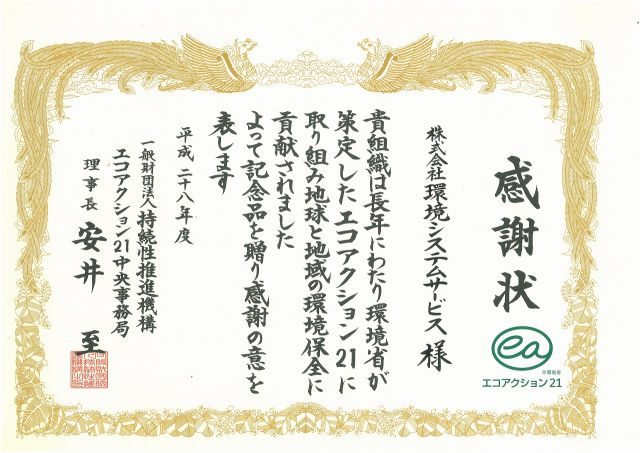 感謝状
ea
©環境省
エコアクション21
株式会社 環境システムサービス 様
貴組織は長年にわたり環境省が
策定したエコアクション21に
取り組み地球と地域の環境保全に
貢献されました
よって記念品を贈り感謝の意を
表します
平成二十八年度
一般財団法人 持続性推進機構
エコアクション21中央事務局
理事長 安井 至